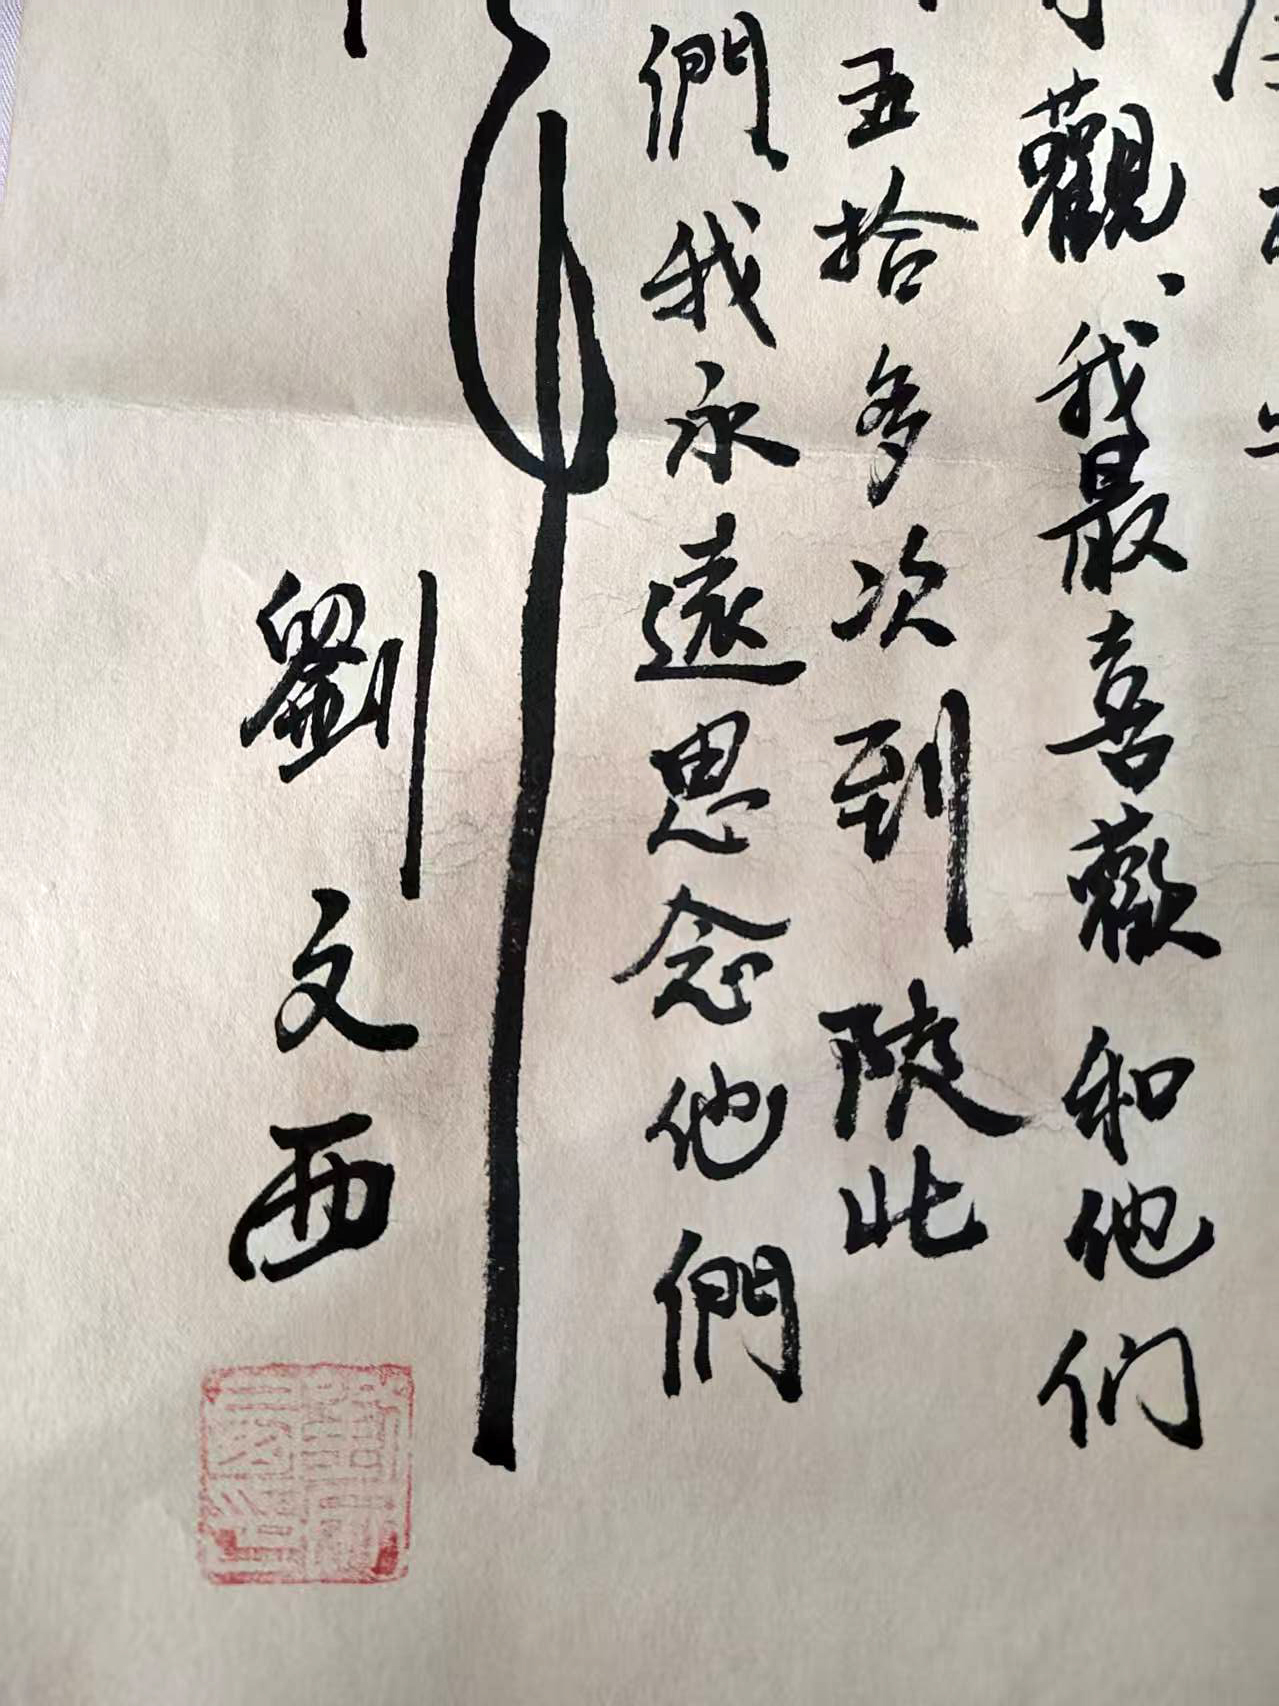 觀、我最喜歡和他们
五拾多次到陝北
們我永遠思念他們
劉文西